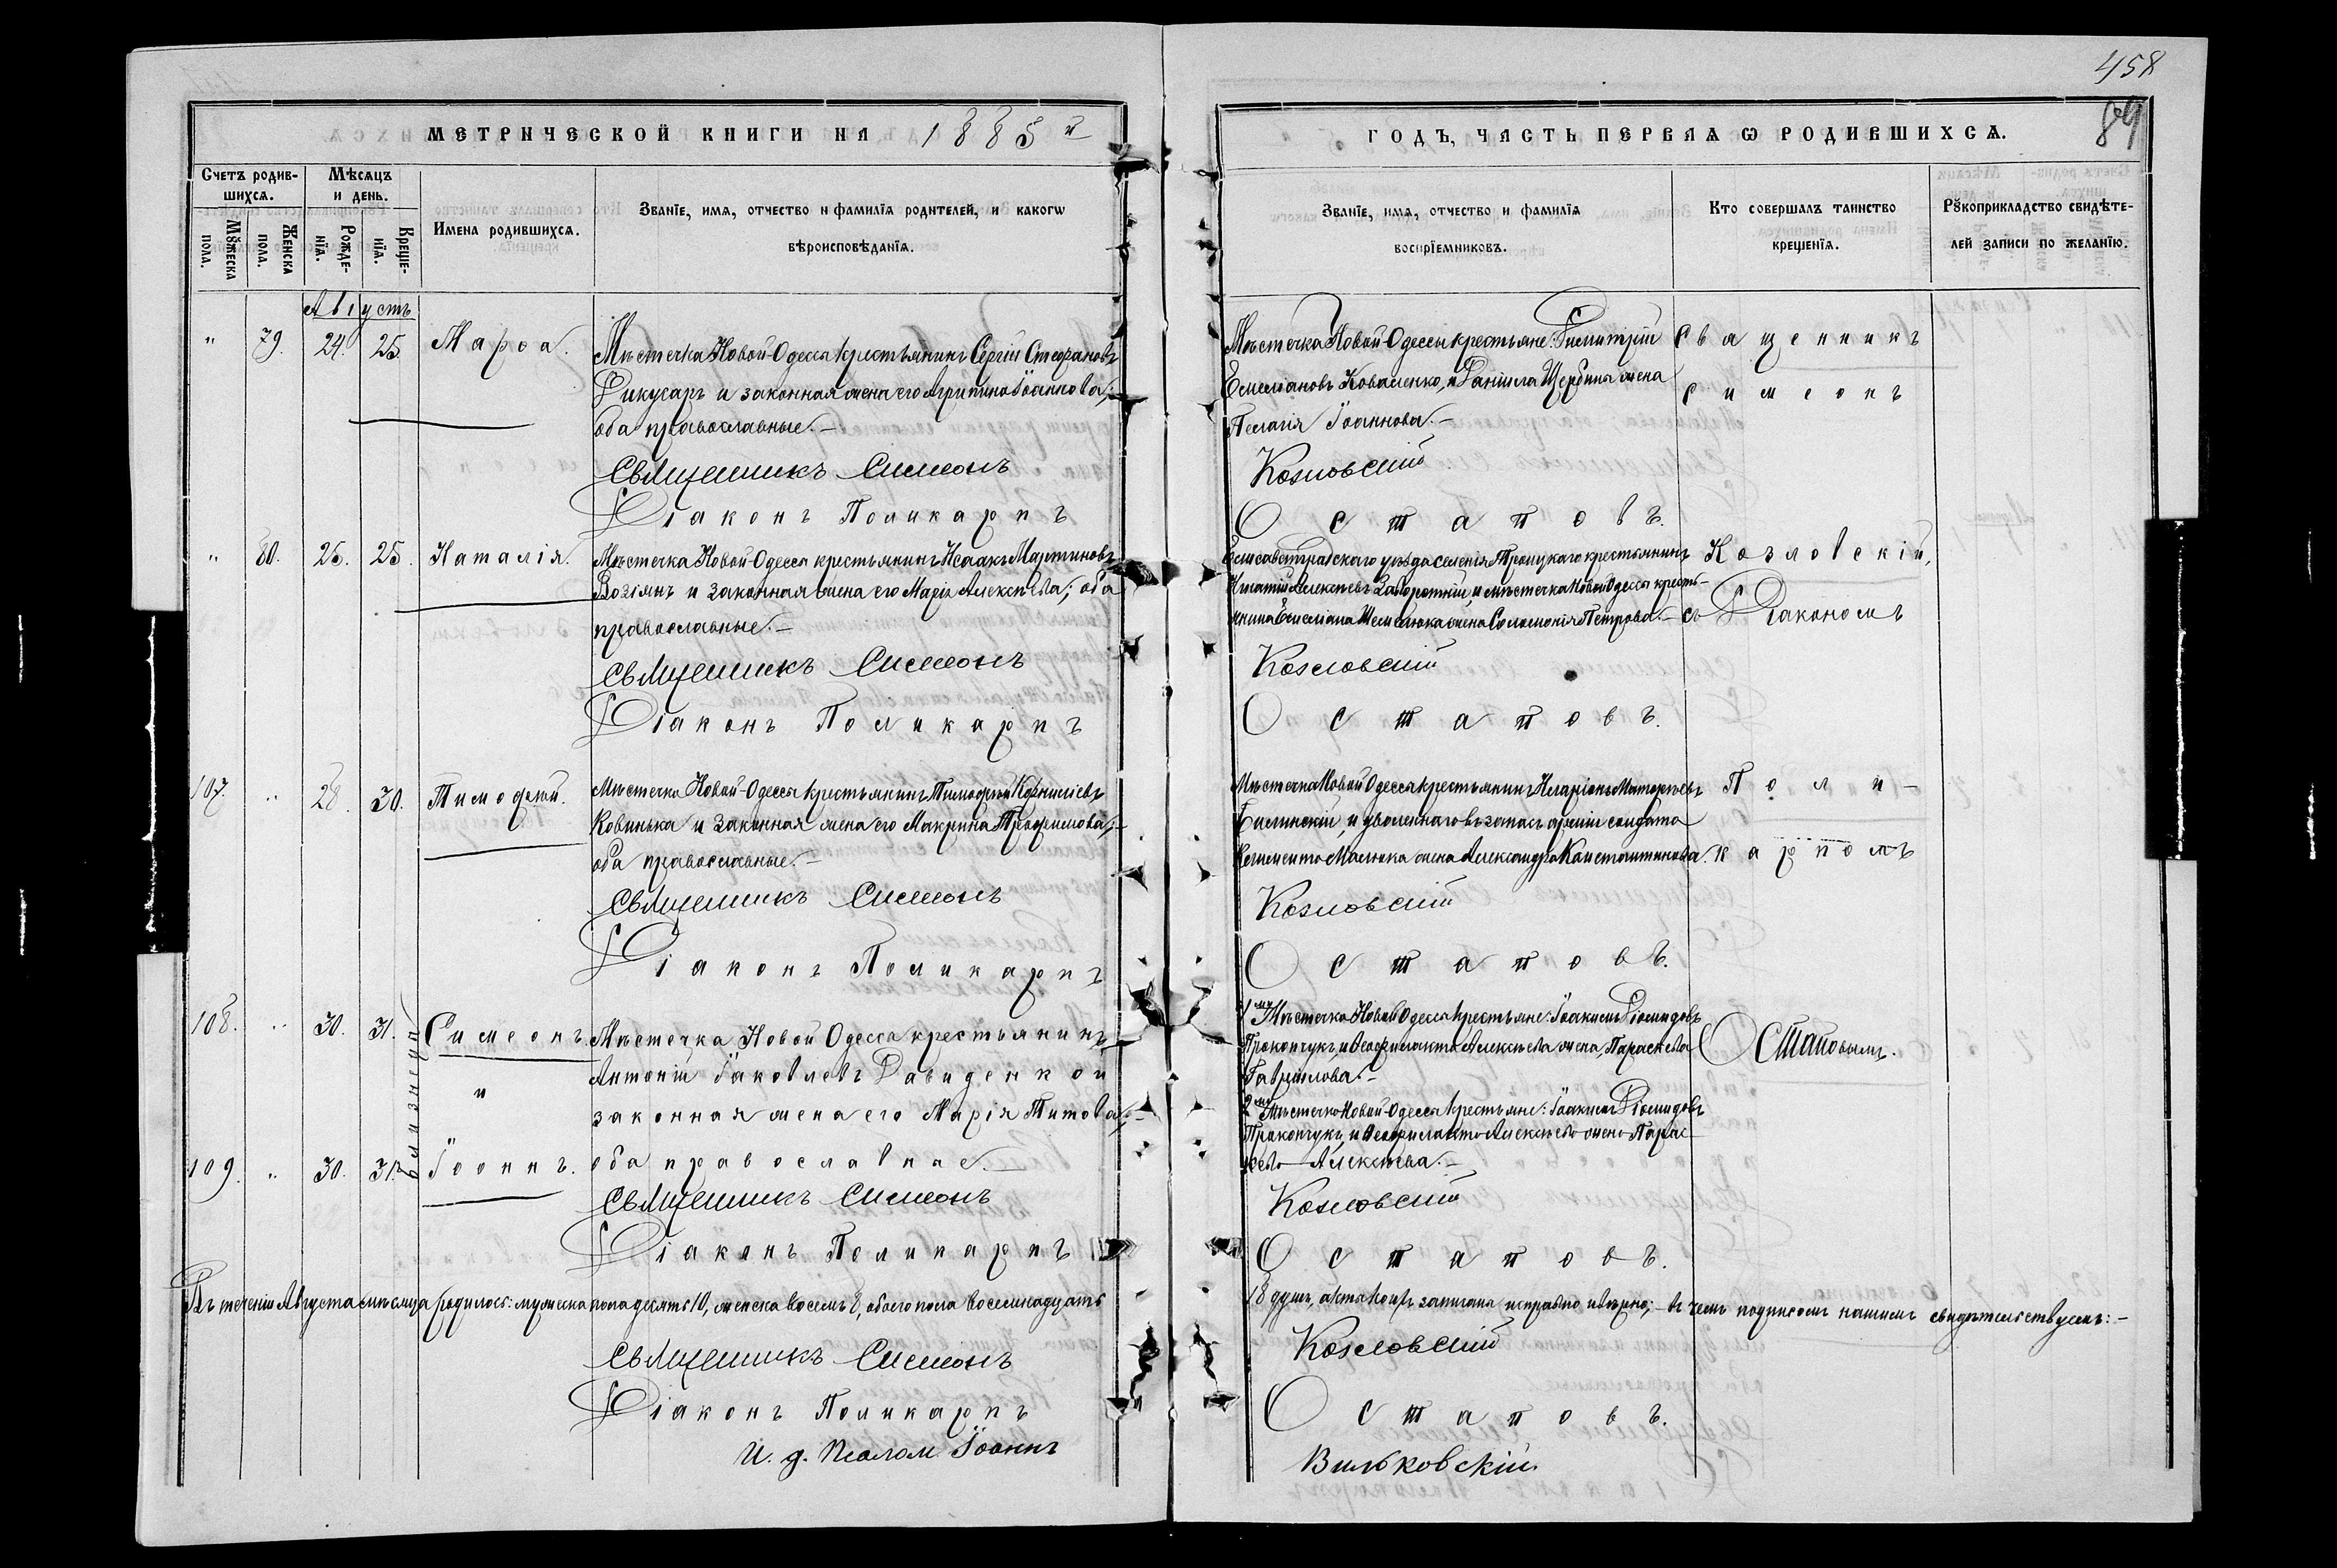 458
89
МЕТРИЧЕСКОЙ КНИГИ НА 1885 й
ГОДЪ, ЧАСТЬ ПЕРВАѦ Ѡ РОДИВШИХСѦ.
Счетъ родив-
шихсѧ.
Мѣсѧцъ
и день.
Мꙋжеска
пола.
Женска
пола.
Рожде-
нїѧ.
Креще-
нїѧ.
Имена родившихсѧ.
Званїе, имѧ, отчество и фамилїѧ родителей, и какогѡ
вѣроисповѣданїѧ.
Званїе, имѧ, отчество и фамилїѧ
воспрїемниковъ.
Кто совершалъ таинство
крещенїѧ.
Рꙋкоприкладство свидѣте-
лей записи по желанїю.
Августъ
" 79. 24. 25. Марѳа.
Мѣстечка Новой-Одессы крестьянинъ Сергій Стефановъ
Фикусаръ и законная жена его Агрипина Іоаннова;
оба православные.—
Священникъ Симеонъ
Діаконъ Поликарпъ
Мѣстечка Новой-Одессы крестьяне: Димитрій
Емельановъ Коваленко, и Даніила Щербины жена
Пелагія Іоаннова.—
Козловскій
Остаповъ.
Священникъ
Симеонъ
" 80. 25. 25. Наталія.
Мѣстечка Новой-Одессы крестьянинъ Исаакъ Мартиновъ
Возіянъ и законная жена его Марія Алексѣева; оба
православные.—
Священникъ Симеонъ
Діаконъ Поликарпъ
Елисаветградскаго уѣзда селенія Троицкаго крестьянинъ
Игнатій Алексѣевъ Заворотній, и мѣстечка Новой Одессы кресть-
янина Емеліана Шемелюка жена Соломонія Петрова.—
Козловскій
Остаповъ.
Козловскій,
съ Діакономъ
107. " 28. 30. Тимофей.
Мѣстечка Новой-Одессы крестьянинъ Тимофей Корниліевъ
Ковинька и законная жена его Макрина Трофимова;—
оба православные.—
Священникъ Симеонъ
Діаконъ Поликарпъ
Мѣстечка Новой Одессы крестьянинъ Иларіонъ Матфеевъ
Билинскій, и уволеннаго въ запасъ арміи солдата
Климента Малюка жена Александра Константинова.
Козловскій
Остаповъ.
Поли-
карпомъ
108. " 30. 31. Симеонъ.
и
близнецы
109. " 30. 31. Іоаннъ.
Мѣстечка Новой Одессы крестьянинъ
Антоній Іаковлевъ Давиденко и
законная жена его Марія Титова;—
оба православные.—
Священникъ Симеонъ
Діаконъ Поликарпъ
1му Мѣстечка Новой Одессы крестьяне: Іоакимъ Діомидовъ
Прокопчукъ, и Ѳеофилакта Алексѣева жена, Параскева
Гавріилова.—
2му Мѣстечка Новой-Одессы крестьяне: Іоакимъ Діомидовъ
Прокопчукъ, и Ѳеофилакта Алексѣева жена Парас-
кева Алексѣева.—
Козловскій
Остаповъ.
Остаповымъ.
Въ теченіи Августа мѣсяца родилось: мужеска пола десять 10, женска восемь 8, обоего пола восемнадцать
18 душъ, акта коихъ записаны исправно и вѣрно;— въ чемъ подписомъ нашимъ свидѣтельствуемъ:—
Священникъ Симеонъ
Козловскій
Діаконъ Поликарпъ
Остаповъ.
И. д. Псалом. Іоаннъ
Вильковскій